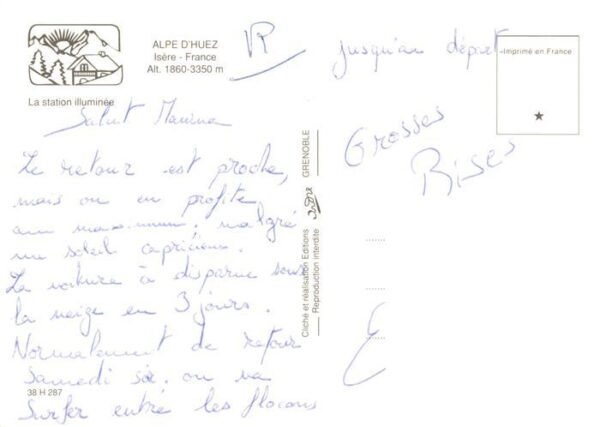 ALPE D'HUEZ
Isère - France
Alt. 1860-3350 m
La station illuminée
Salut
Le retour est proche,
mais on en profite
au malgré
un soleil capricieux.
La voiture à disparue sous
la neige en 3 jours.
Normalement de retour
Samedi soir, on va
Surfer entre les flocons
38 H 287
GRENOBLE
Cliché et réalisation Editions
Reproduction interdite
jusqu'au départ
Imprimé en France
Grosses
Bises